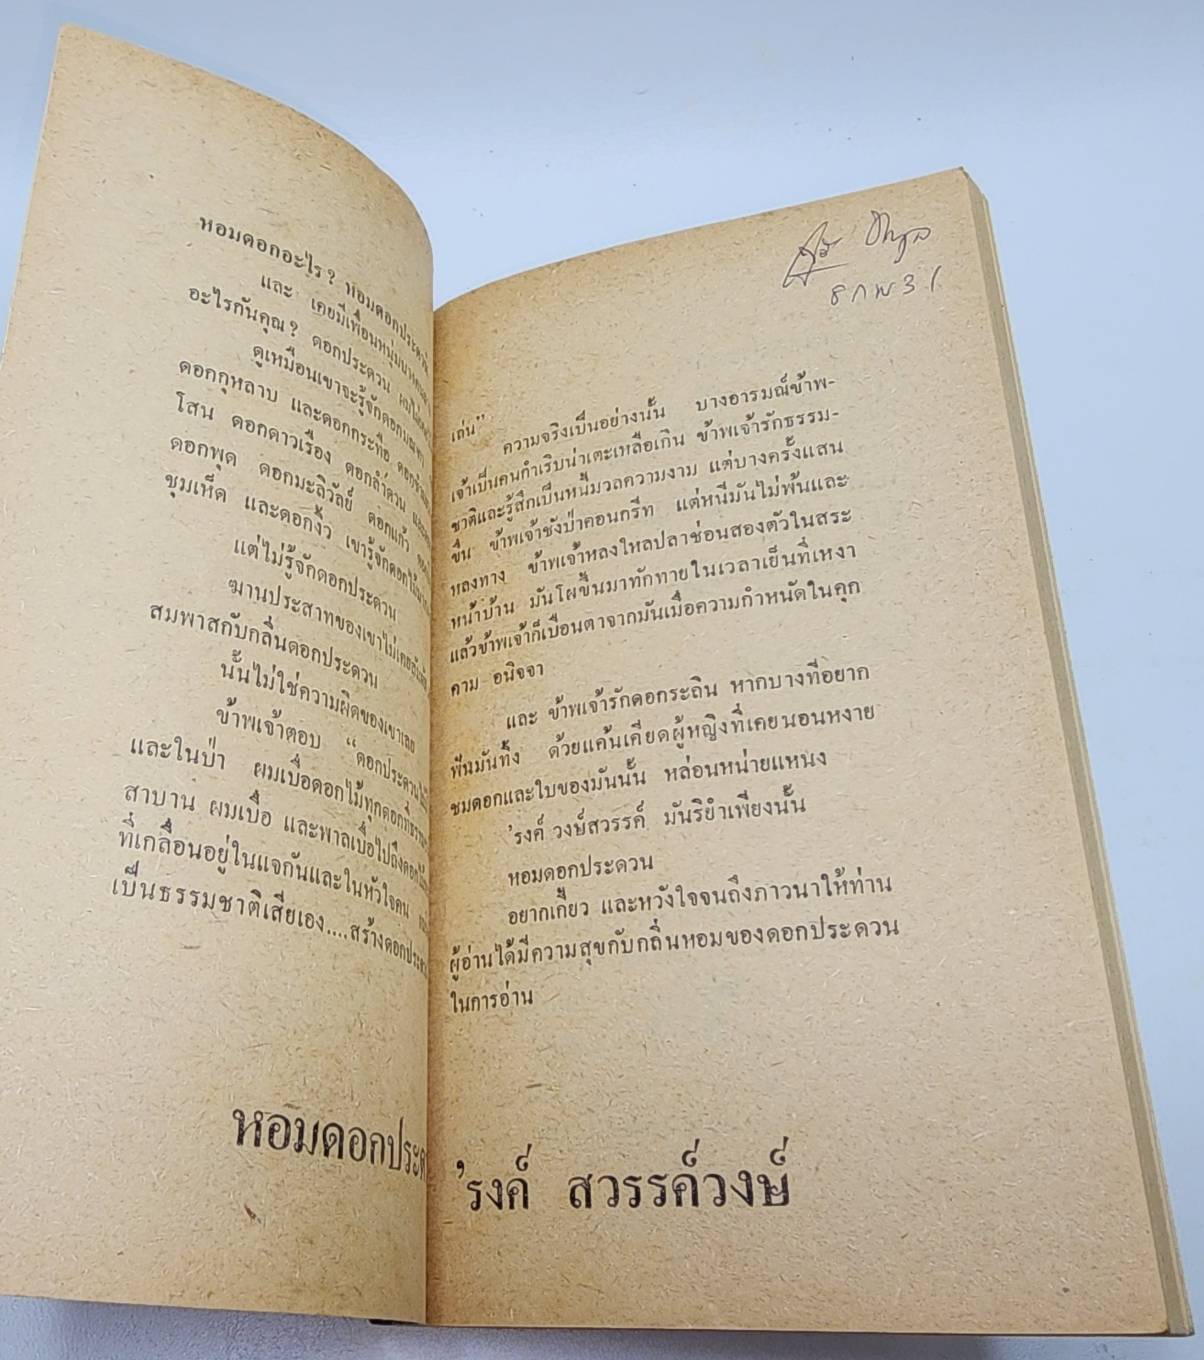 หอมดอกอะไร? หอมดอกประดวน
และ เคยมีเพื่อนหนุ่มบาง
อะไรกันคุณ? ดอกประดวน ผมไม่
ดูเหมือนเขาจะรู้จักดอก
ดอกกุหลาบ และดอกกระทือ
โสน ดอกดาวเรือง ดอกลำดวน
ดอกพุด ดอกมะลิวัลย์ ดอกแก้ว
ชุมเห็ด และดอกงิ้ว เขารู้จักดอกไม้
แต่ไม่รู้จักดอกประดวน
ฆานประสาทของเขาไม่เคย
สมพาสกับกลิ่นดอกประดวน
นั้นไม่ใช่ความผิดของเขาเลย
ข้าพเจ้าตอบ “ดอกประดวน
และในป่า ผมเบื่อดอกไม้ทุกดอกที่
สาบาน ผมเบื่อ และพาลเบื่อไปถึงดอกไม้
ที่เกลื่อนอยู่ในแจกันและในหัวใจคน
เป็นธรรมชาติเสียเอง....สร้างดอกประดวน
หอมดอกประด
๘ กพ ๓๑
เถ่น”
ความจริงเป็นอย่างนั้น บางอารมณ์ข้าพ-
เจ้าเป็นคนกำเริบน่าเตะเหลือเกิน ข้าพเจ้ารักธรรม-
ชาติและรู้สึกเป็นหนี้มวลความงาม แต่บางครั้งแสน
ขื่น ข้าพเจ้าชังป่าคอนกรีท แต่หนีมันไม่พ้นและ
หลงทาง ข้าพเจ้าหลงใหลปลาช่อนสองตัวในสระ
หน้าบ้าน มันโผขึ้นมาทักทายในเวลาเย็นที่เหงา
แล้วข้าพเจ้าก็เบือนตาจากมันเมื่อความกำหนัดในคุก
คาม อนิจจา
และ ข้าพเจ้ารักดอกระถิน หากบางทีอยาก
ฟันมันทิ้ง ด้วยแค้นเคียดผู้หญิงที่เคยนอนหงาย
ชมดอกและใบของมันนั้น หล่อนหน่ายแหนง
’รงค์ วงษ์สวรรค์ มันริยำเพียงนั้น
หอมดอกประดวน
อยากเกี้ยว และหวังใจจนถึงภาวนาให้ท่าน
ผู้อ่านได้มีความสุขกับกลิ่นหอมของดอกประดวน
ในการอ่าน
’รงค์ สวรรค์วงษ์